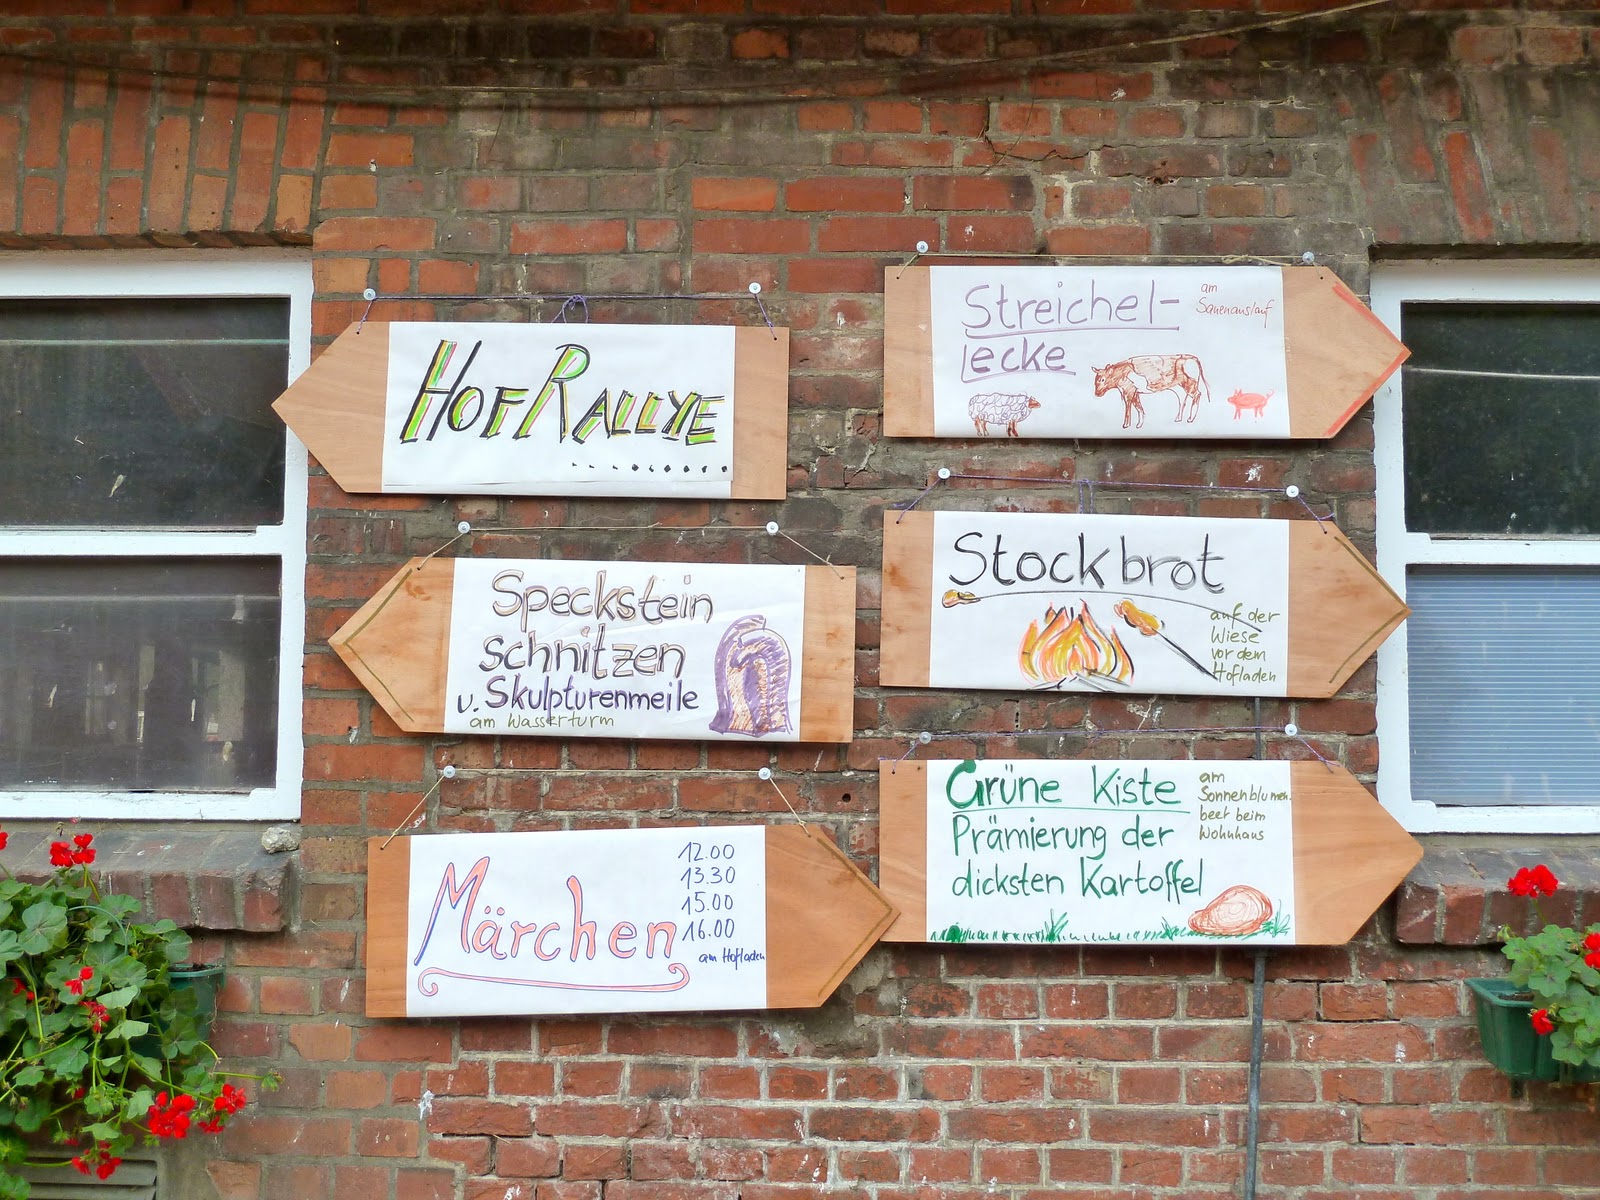 HofRallye
Speckstein
schnitzen
u. Skulpturenmeile
am Wasserturm
Märchen
12.00
13.30
15.00
16.00
am Hofladen
Streichel-
ecke
am
Sauenauslauf
Stockbrot
auf der
Wiese
vor dem
Hofladen
Grüne Kiste
Prämierung der
dicksten Kartoffel
am
Sonnenblumen-
beet beim
Wohnhaus